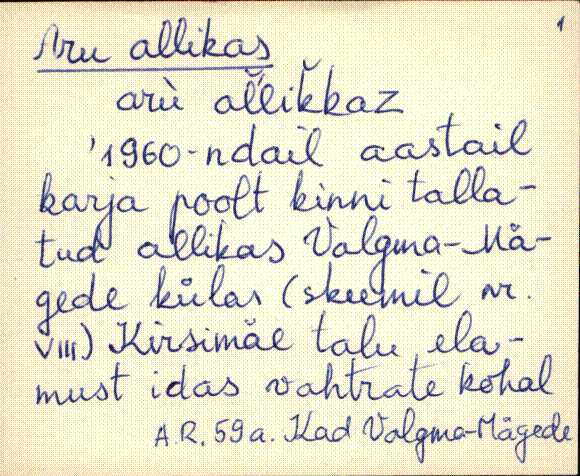 1
Aru allikas
arù al̆likkaz
'1960-ndail aastail
karja poolt kinni talla-
tud allikas Valgma-Mä-
gede külas (skeemil nr.
VIII) Kirsimäe talu ela-
must idas vahtrate kohal
A.R. 59a. Kad Valgma-Mägede